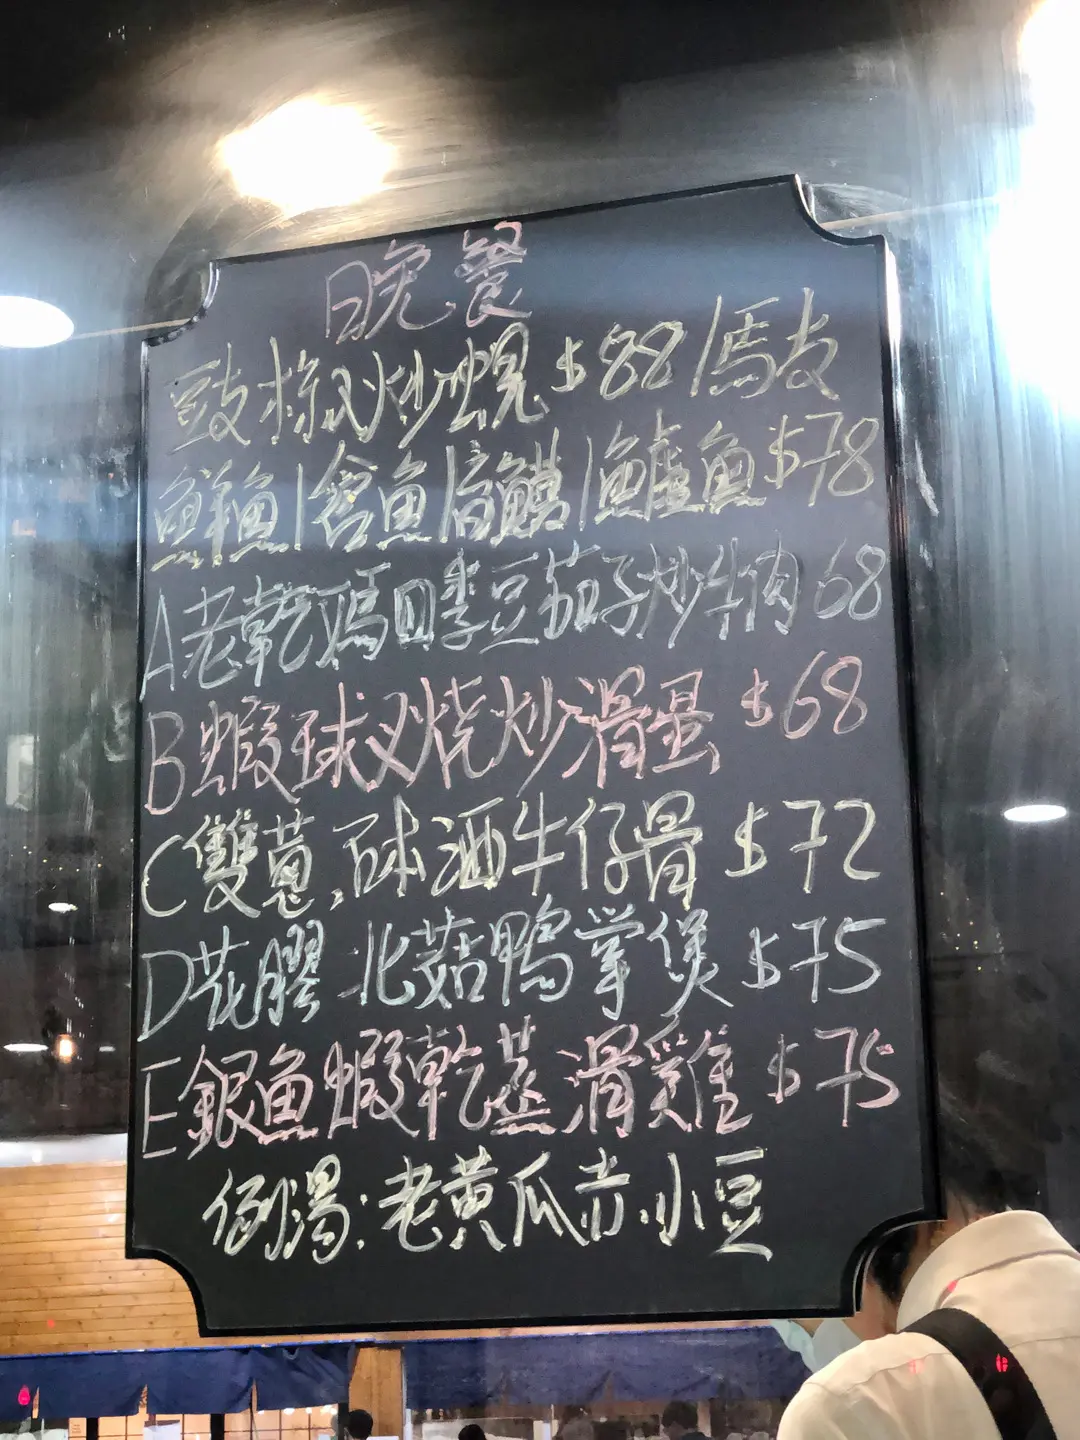 晚餐
豉椒炒蜆 $88/馬友
鮮魚/倉魚/盲鰽/鱸魚 $78
A老乾媽四季豆茄子炒牛肉 68
B蝦球叉燒炒滑蛋 $68
C雙蔥.砵酒牛仔骨 $72
D花膠北菇鴨掌煲 $75
E銀魚蝦乾蒸滑雞 $75
例湯:老黃瓜赤小豆